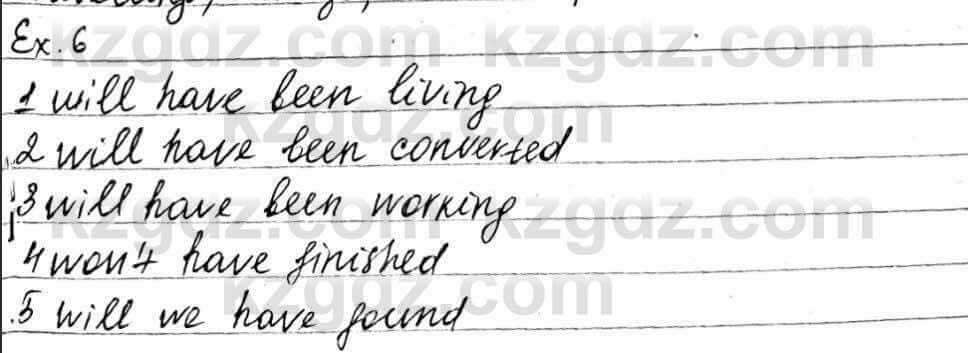 Ex. 6
1 will have been living
2 will have been converted
3 will have been working
4 won't have finished
.5 will we have found
kzgdz.com kzgdz.com
kzgdz.com
kzgdz.com kzgdz.com
kzgdz.com